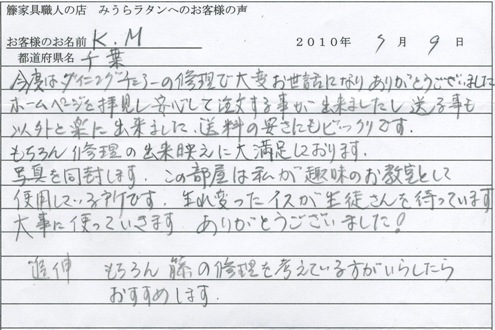 籐家具職人の店 みうらラタンへのお客様の声
お客様のお名前 K.M 2010年 5月 9日
都道府県名 千葉
今度はダイニングチェアーの修理で大変お世話になりありがとうございました
ホームページを拝見し安心して注文する事が出来ましたし送る事も
以外と楽に出来ました。送料の安さにもビックリです。
もちろん修理の出来映えに大満足しております。
写真を同封します。この部屋は私が趣味のお教室として
使用している所です。生れ変ったイスが生徒さんを待っています
大事に使っていきます。ありがとうございました!
追伸 もちろん籐の修理を考えている方がいらしたら
おすすめします。